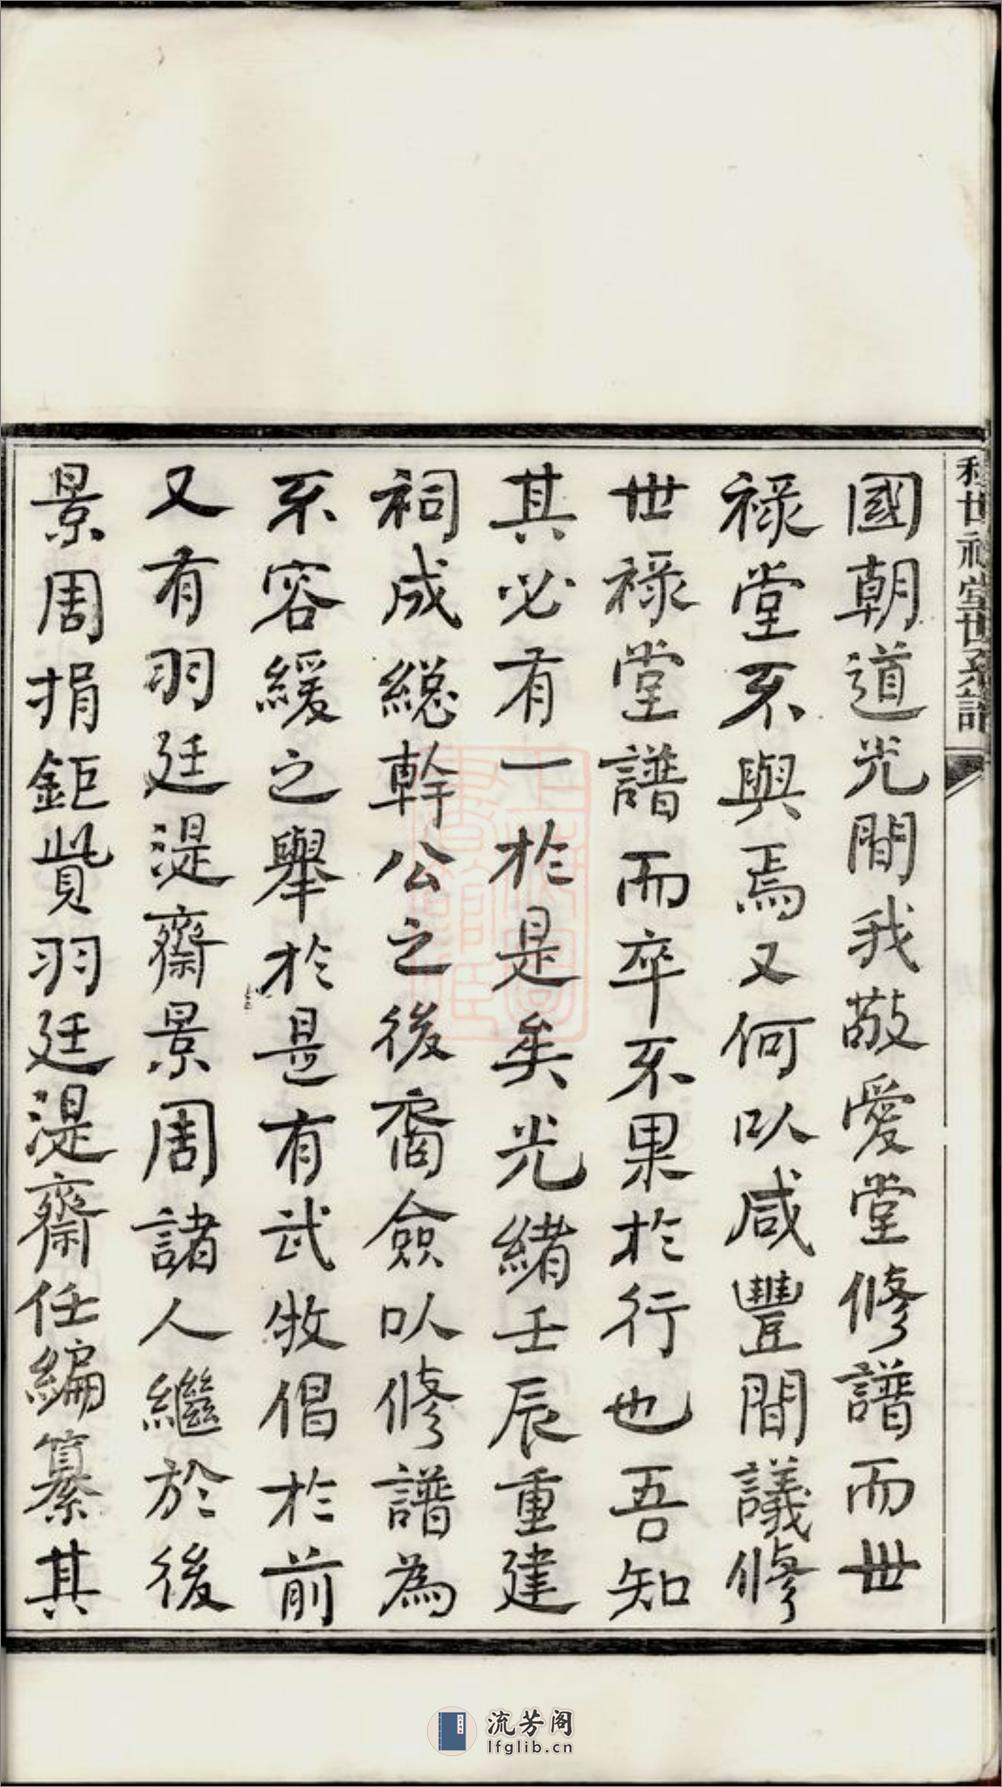 國朝道光間我敬愛堂修譜而世
祿堂不與焉又何以咸豐間議修
世祿堂譜而卒不果於行也吾知
其必有一於是矣光緒壬辰重建
祠成總幹公之後裔僉以修譜為
不容緩之舉於是有武牧倡於前
又有羽廷湜齋景周諸人繼於後
景周捐鉅貲羽廷湜齋任編纂其
世祿堂世系譜
流芳阁
lfglib.cn